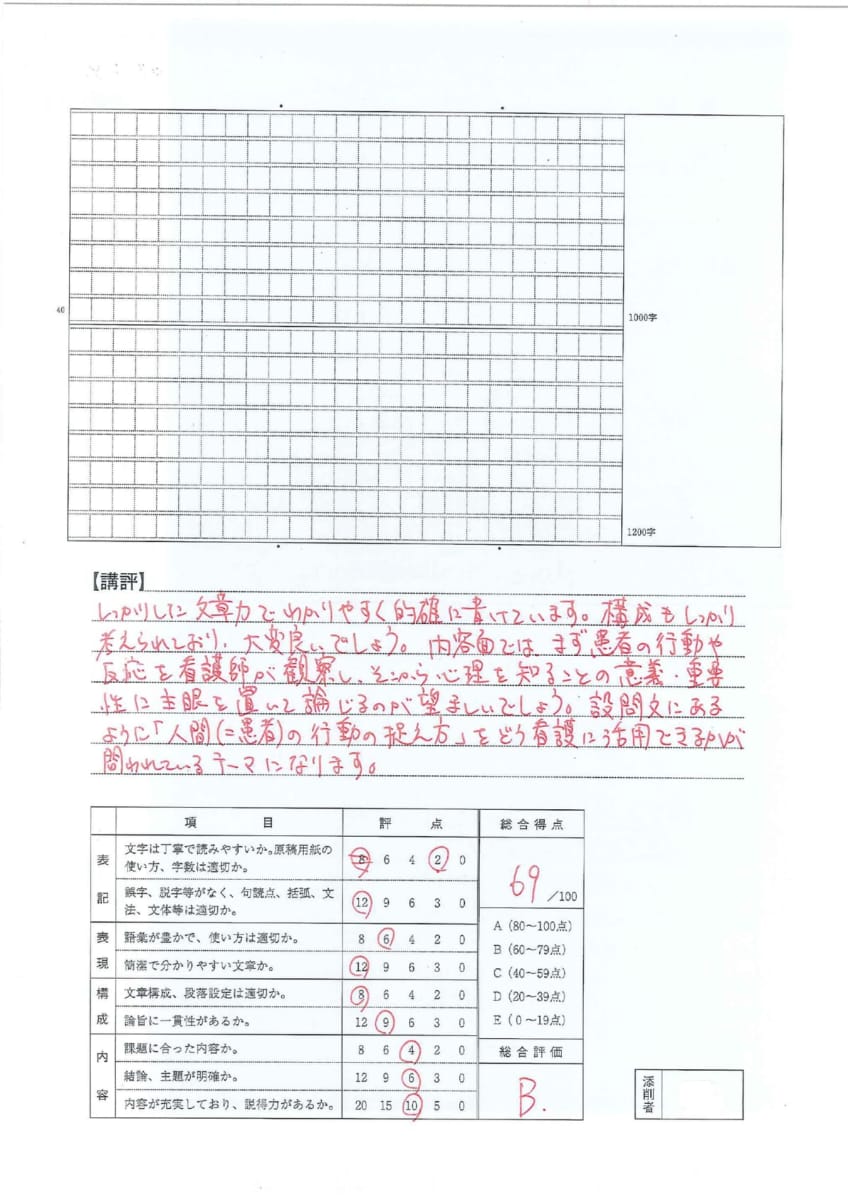 40
1000字
1200字
【講評】
しっかりした文章力でわかりやすく的確に書けています。構成もしっかり
考えられており、大変良いでしょう。内容面では、まず、患者の行動や
反応を看護師が観察し、そこから心理を知ることの意義・重要
性に主眼を置いて論じるのが望ましいでしょう。設問文にある
ように「人間(=患者)の行動の捉え方」をどう看護に活用できるかが
問われているテーマになります。
項目 評点 総合得点
表記
文字は丁寧で読みやすいか。原稿用紙の
使い方、字数は適切か。
8 6 4 2 0
誤字、説字等がなく、句読点、括弧、文
法、文体等は適切か。
12 9 6 3 0
表現
語彙が豊かで、使い方は適切か。
8 6 4 2 0
簡潔で分かりやすい文章か。
12 9 6 3 0
構成
文章構成、段落設定は適切か。
8 6 4 2 0
論旨に一貫性があるか。
12 9 6 3 0
内容
課題に合った内容か。
8 6 4 2 0
結論、主題が明確か。
12 9 6 3 0
内容が充実しており、説得力があるか。
20 15 10 5 0
69/100
A(80~100点)
B(60~79点)
C(40~59点)
D(20~39点)
E(0~19点)
総合評価
B.
添削者